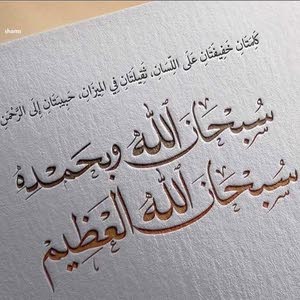 shams
كَلِمَتَانِ خَفِيفَتَانِ عَلَى اللِّسَانِ، ثَقِيلَتَانِ فِي المِيزَانِ، حَبِيبَتَانِ إِلَى الرَّحْمَنِ
سُبْحَانَ اللَّهِ وَبِحَمْدِهِ
سُبْحَانَ اللَّهِ العَظِيمِ